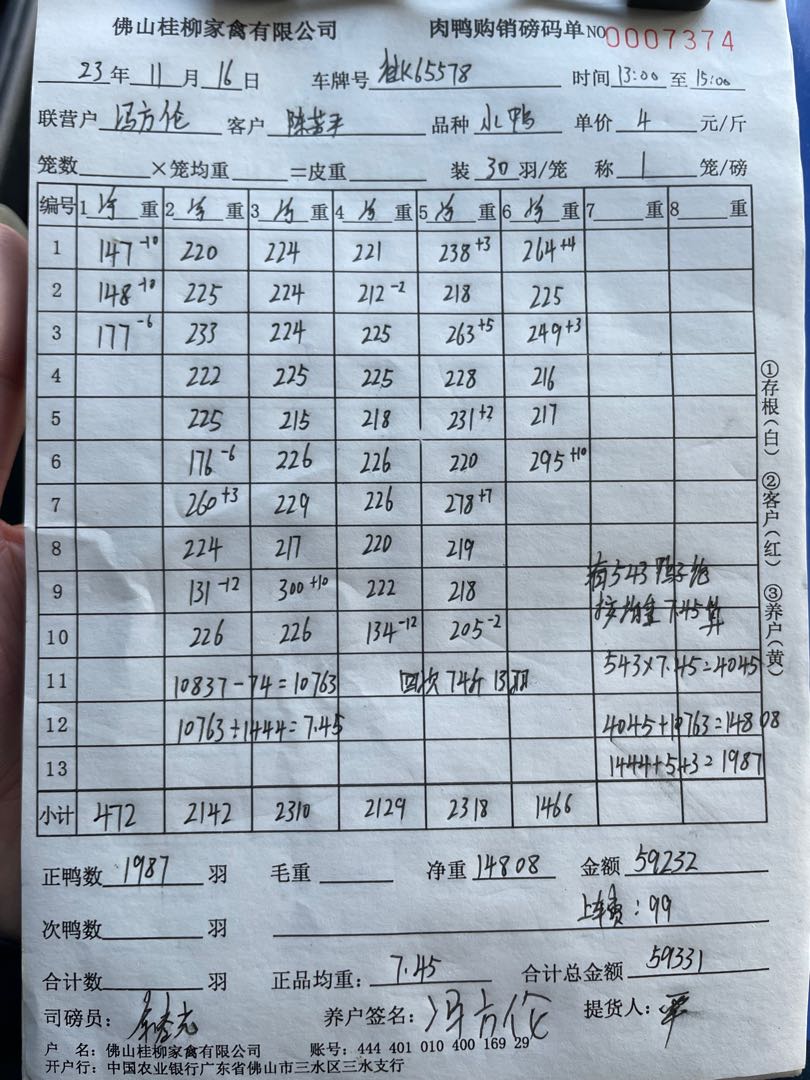 佛山桂柳家禽有限公司 肉鸭购销磅码单 NO 0007374
23年11月16日 车牌号 桂K65578 时间 13:00 至 15:00
联营户 冯方伦 客户 陈芳平 品种 水鸭 单价 4 元/斤
笼数 ×笼均重 =皮重 装 30 羽/笼 称 1 笼/磅
编号 1 均 重 2 均 重 3 均 重 4 均 重 5 均 重 6 均 重 7 重 8 重
1 147-10 220 224 221 238+3 264+4
2 148-10 225 224 212-2 218 225
3 177-6 233 224 225 263+5 249+3
4 222 225 225 228 216
5 225 215 218 231+2 217
6 176-6 226 226 220 295+10
7 260+3 229 226 278+7
8 224 217 220 219
9 131-12 300+10 222 218
10 226 226 134-12 205-2
有543鸭子
按均重7.45算
11 10837-74=10763 回次74斤13羽 543×7.45=4045
12 10763÷1444=7.45 4045+10763=14808
13 1444+543=1987
小计 472 2142 2310 2129 2318 1466
正鸭数 1987 羽 毛重 净重 14808 金额 59232
次鸭数 羽 上车费:99
合计数 羽 正品均重: 7.45 合计总金额 59331
司磅员: 养户签名: 冯方伦 提货人: 平
户 名: 佛山桂柳家禽有限公司 账号: 444 401 010 400 169 29
开户行: 中国农业银行广东省佛山市三水区三水支行
①存根(白) ②客户(红) ③养户(黄)